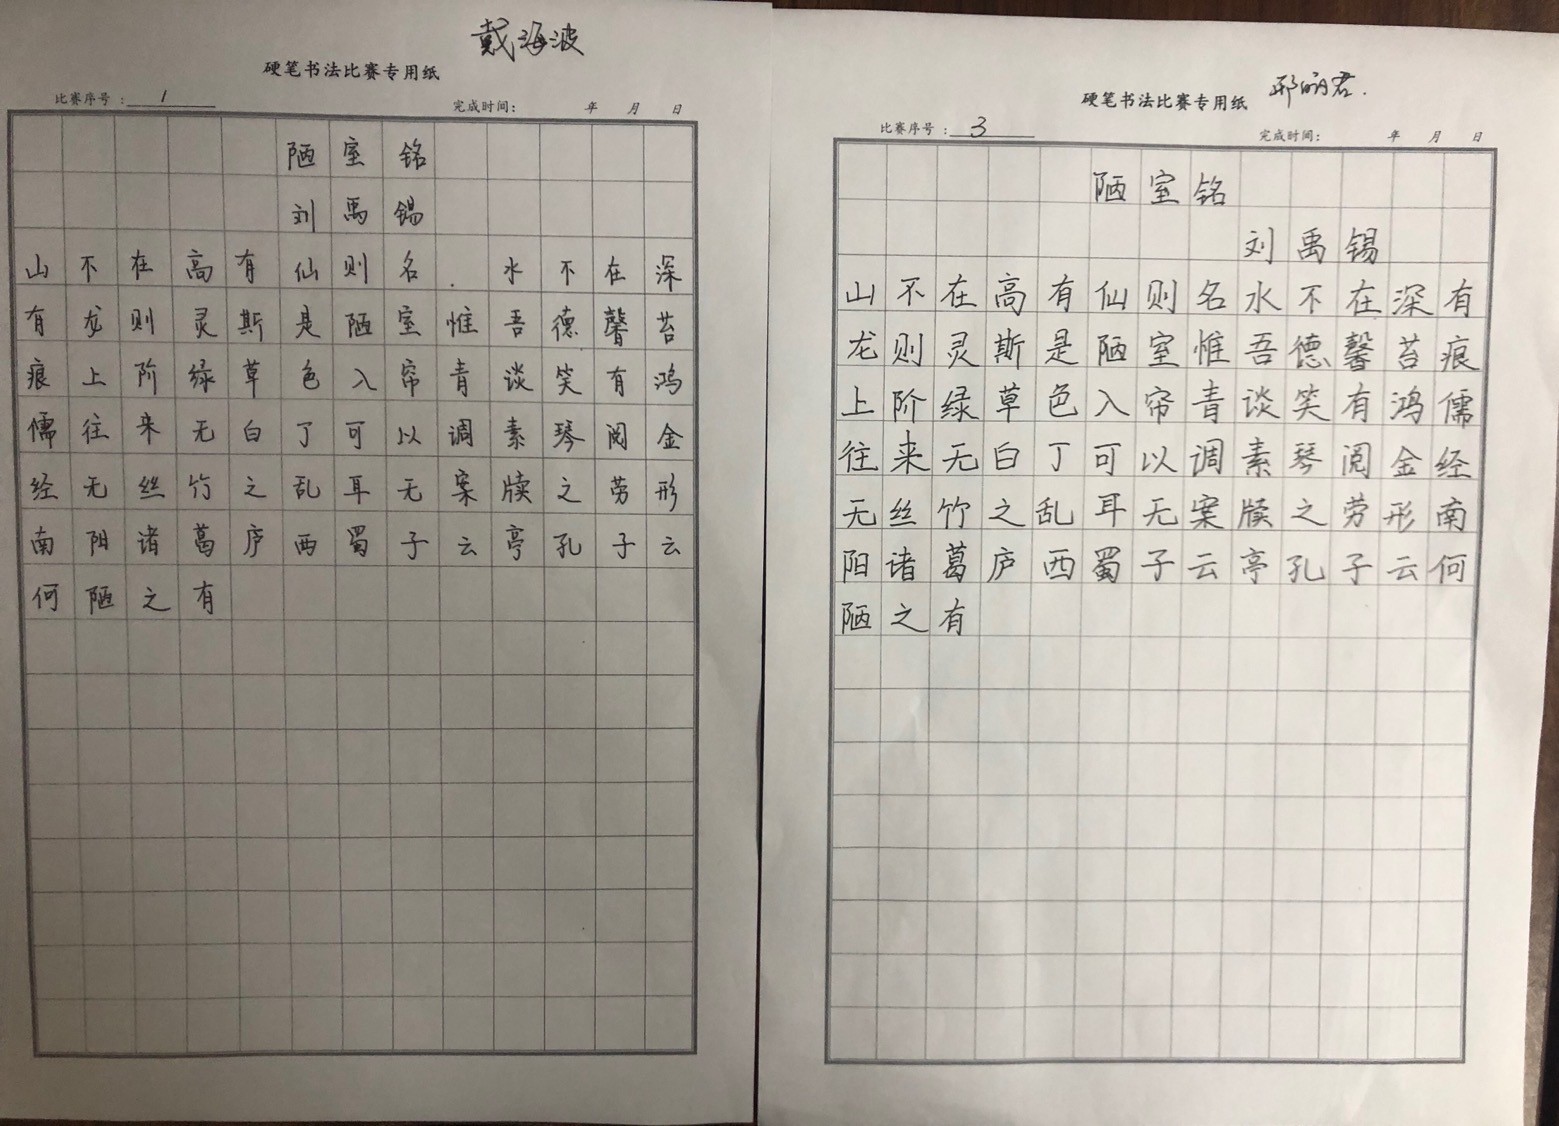 戴海波
硬笔书法比赛专用纸
比赛序号：1 完成时间： 年 月 日
陋室铭
刘禹锡
山不在高有仙则名.水不在深
有龙则灵斯是陋室惟吾德馨苔
痕上阶绿草色入帘青谈笑有鸿
儒往来无白丁可以调素琴阅金
经无丝竹之乱耳无案牍之劳形
南阳诸葛庐西蜀子云亭孔子云
何陋之有
邢
硬笔书法比赛专用纸
比赛序号：3 完成时间： 年 月 日
陋室铭
刘禹锡
山不在高有仙则名水不在深有
龙则灵斯是陋室惟吾德馨苔痕
上阶绿草色入帘青谈笑有鸿儒
往来无白丁可以调素琴阅金经
无丝竹之乱耳无案牍之劳形南
阳诸葛庐西蜀子云亭孔子云何
陋之有